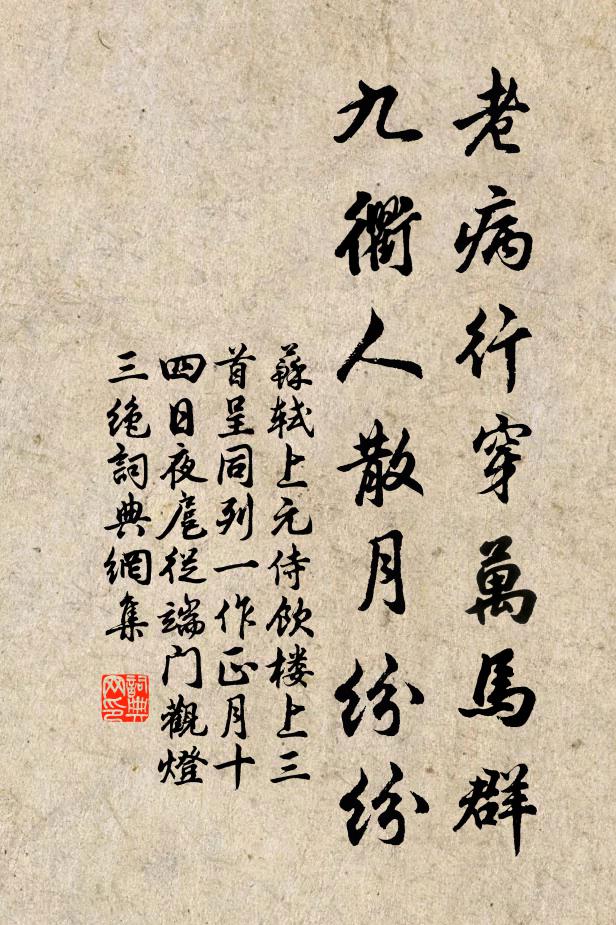 老病行穿萬馬群
九衢人散月紛紛
蘇軾上元侍飲楼上三
首呈同列一作正月十
四日夜扈從端门觀燈
三絶詞典網集
詞典
网印